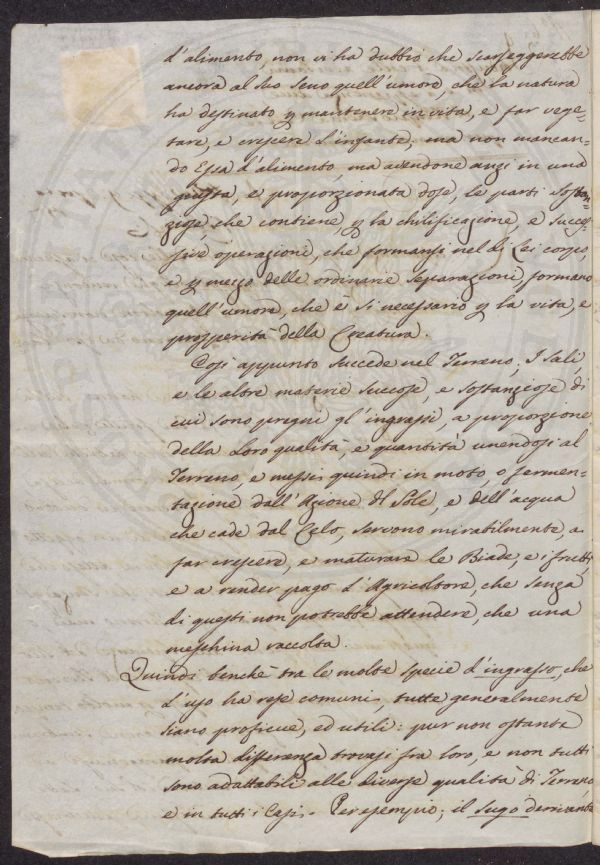 d'alimento, non vi ha dubbio che scarseggerebbe
ancora al suo seno quell'umore che la natura
ha destinato p mantenere in vita, e far vege=
tare, e crescere l'infante; ma non mancan=
do Essa d'alimento, ma avendone anzi in una
giusta, e proporzionata dose, le parti sostan=
ziose che contiene, p la chilificazione, e succes=
sive operazioni, che formansi nel di Lei corpo,
e p mezzo delle ordinarie separazioni, formano
quell'umore, che è si necessario p la vita, e
prosperità della Creatura.
Così appunto succede nel Terreno, I sali,
e le altre materie succose, e sostanziose di
cui sono pregni gl'ingrassi, a proporzione
della loro qualità, e quantità unendosi al
Terreno, e messi quindi in moto, o fermen=
tazione dall'Azione del Sole, e dell'acqua
che cade dal Celo, servono mirabilmente, a
far crescere, e maturare le Biade, e i frutti,
e a render pago l'Agricoltore, che senza
di questi non potrebbe attendere, che una
meschina raccolta.
Quindi benchè tra le molte specie d'ingrasso, che
l'uso ha rese comuni, tutte generalmente
siano proficue, ed utili: pur non ostante
molta differenza trovasi fra loro, e non tutti
sono adattabili alle diverse qualità di Terreno,
e in tutti i Casi. Per esempio; il sugo derivante